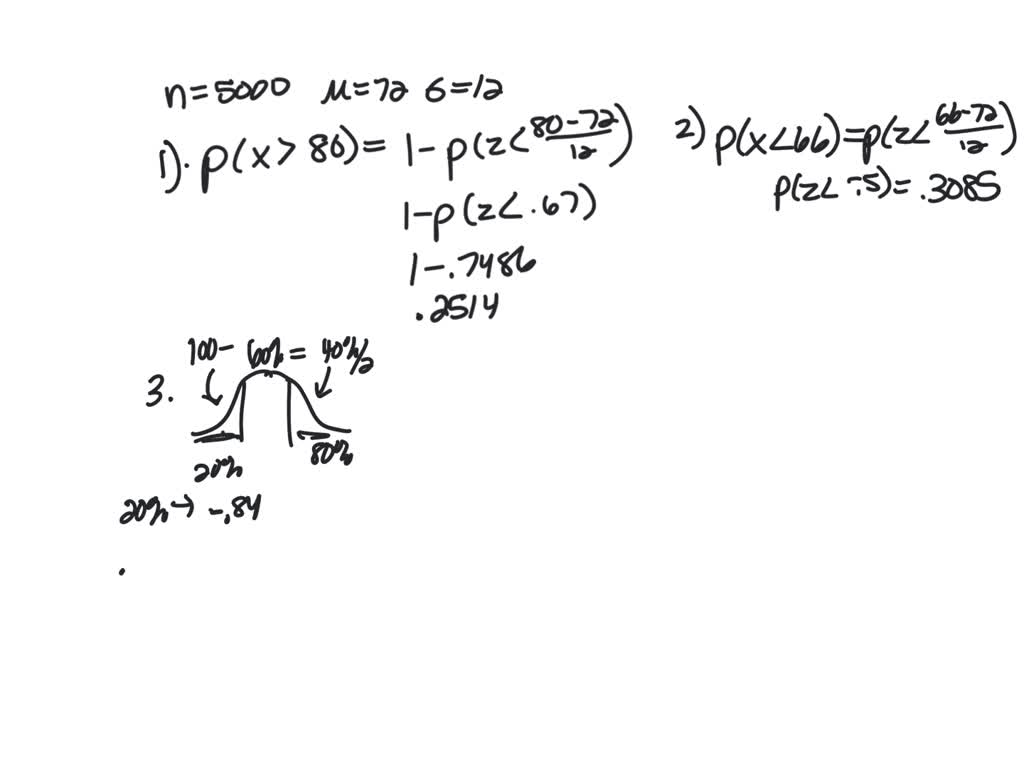 n=5000 μ=72 6=12
1). p(x> 80)= 1-p(z<80-72/12)
1-p(z<.67)
1-.7486
.2514
2) p(x<66)=p(z<66-72/12)
p(z<-.5)=.3085
3. 100- 60%= 40%/2
20% 80%
20%→ -.84
.